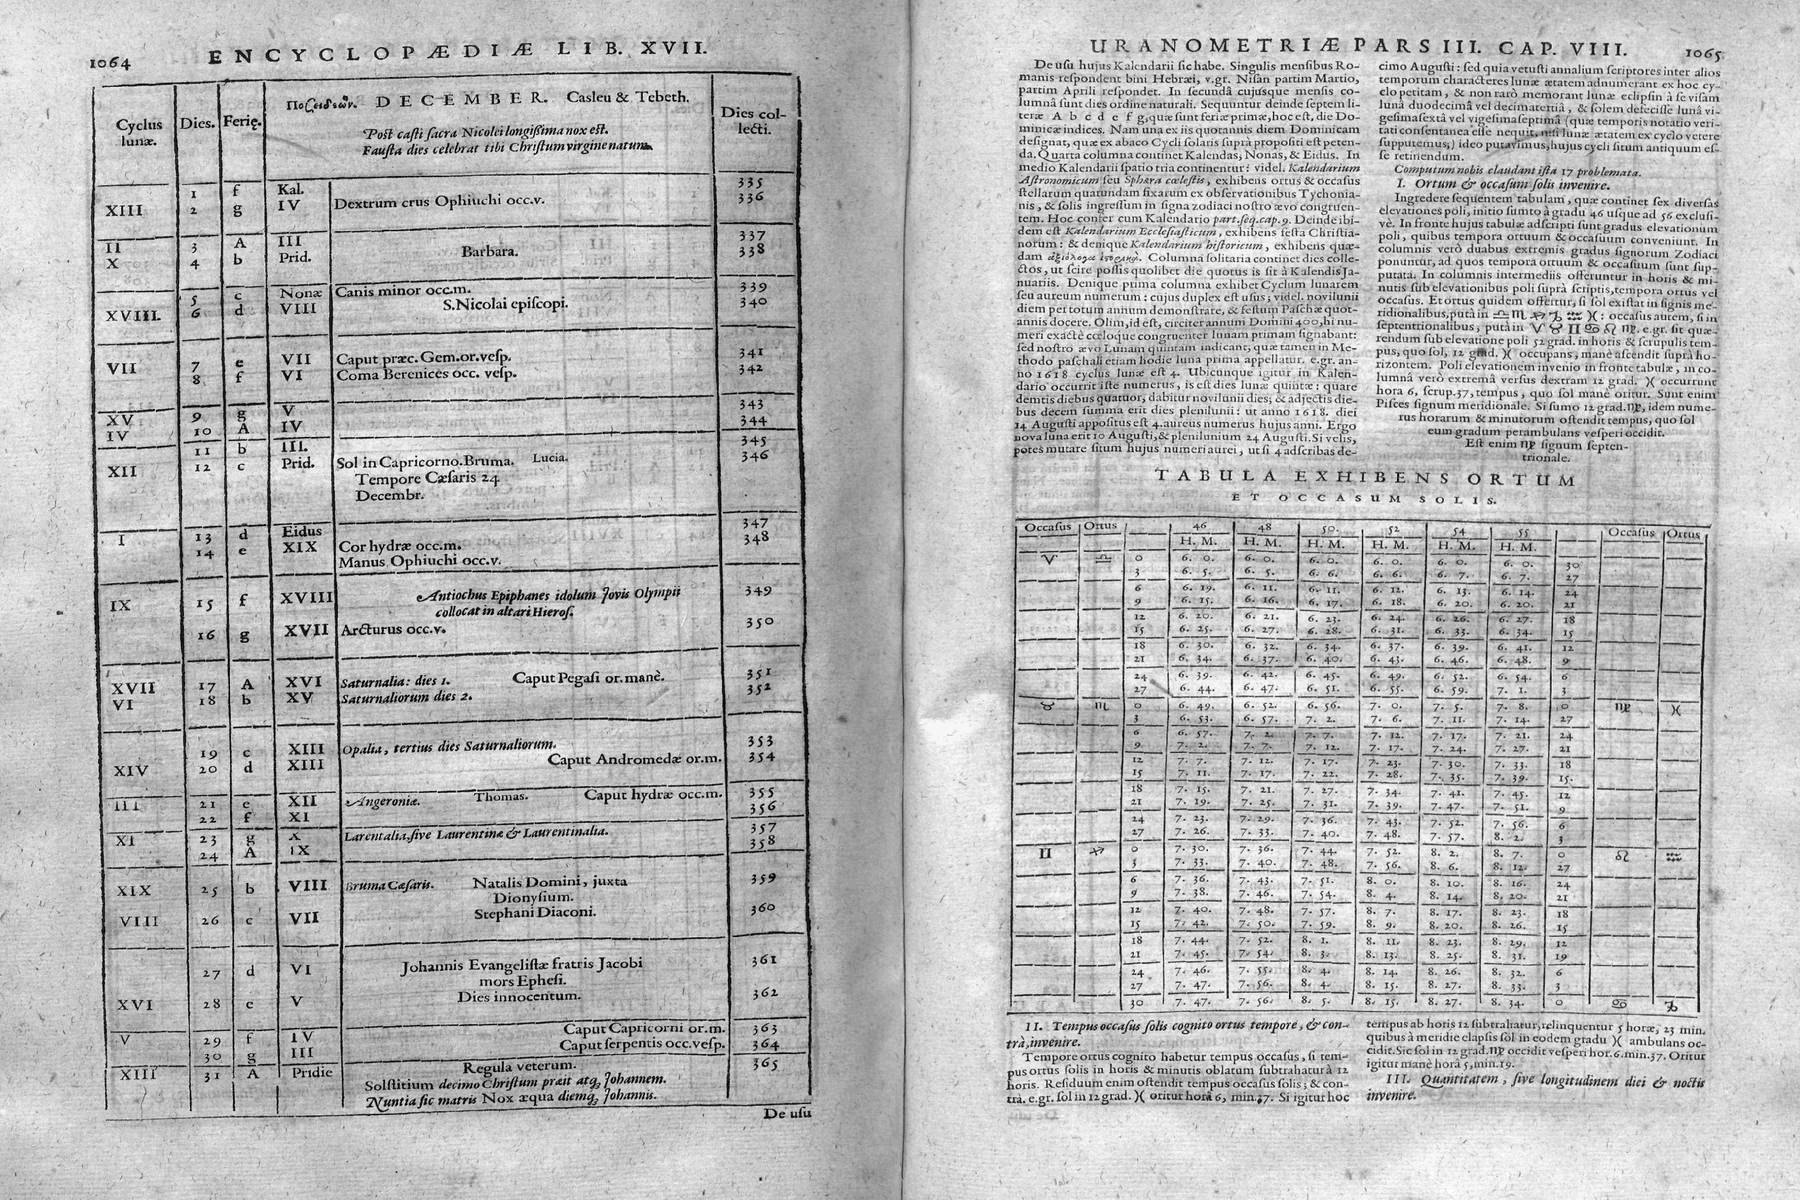 1064
ENCYCLOPÆDIÆ LIB. XVII.
Cyclus lunæ. Dies. Ferię. Ποσειδεών. DECEMBER. Casleu & Tebeth. Dies collecti.
Post casti sacra Nicolei longissima nox est.
Fausta dies celebrat tibi Christum virgine natum.
1 f Kal. 335
XIII 2 g IV Dextrum crus Ophiuchi occ.v. 336
II 3 A III 337
X 4 b Prid. Barbara. 338
5 c Nonæ Canis minor occ.m. 339
XVIII. 6 d VIII S. Nicolai episcopi. 340
VII 7 e VII Caput præc. Gem.or.vesp. 341
8 f VI Coma Berenices occ. vesp. 342
XV 9 g V 343
IV 10 A IV 344
11 b III. 345
XII 12 c Prid. Sol in Capricorno. Bruma. Lucia. 346
Tempore Cæsaris 24
Decembr.
I 13 d Eidus 347
14 e XIX Cor hydræ occ.m. 348
Manus Ophiuchi occ.v.
IX 15 f XVIII Antiochus Epiphanes idolum Jovis Olympii 349
collocat in altari Hieros.
16 g XVII Arcturus occ.v. 350
XVII 17 A XVI Saturnalia: dies 1. Caput Pegasi or. manè. 351
VI 18 b XV Saturnaliorum dies 2. 352
19 c XIII Opalia, tertius dies Saturnaliorum. 353
XIV 20 d XIII Caput Andromedæ or.m. 354
III 21 e XII Angeroniæ. Thomas. Caput hydræ occ.m. 355
22 f XI 356
XI 23 g X Larentalia, sive Laurentinæ & Laurentinalia. 357
24 A IX 358
XIX 25 b VIII Bruma Cæsaris. Natalis Domini, juxta 359
Dionysium.
VIII 26 c VII Stephani Diaconi. 360
27 d VI Johannis Evangelistæ fratris Jacobi 361
mors Ephesi.
XVI 28 e V Dies innocentum. 362
V 29 f IV Caput Capricorni or.m. 363
30 g III Caput serpentis occ.vesp. 364
XIII 31 A Pridie Regula veterum. 365
Solstitium decimo Christum præit atq; Johannem.
Nuntia sic matris Nox æqua diemq; Johannis.
De usu
URANOMETRIÆ PARS III. CAP. VIII.
1065
De usu hujus Kalendarii sic habe. Singulis mensibus Romanis
respondent bini Hebræi, v.gr. Nisan partim Martio,
partim Aprili respondet. In secundâ cujusque mensis columnâ
sunt dies ordine naturali. Sequuntur deinde septem literæ
A b c d e f g, quæ sunt feriæ primæ, hoc est, die Dominicæ
indices. Nam una ex iis quotannis diem Dominicam
designat, quæ ex abaco Cycli solaris suprà propositi est petenda.
Quarta columna continet Kalendas, Nonas, & Eidus. In
medio Kalendarii spatio tria continentur: videl. Kalendarium
Astronomicum seu Sphæra cœlestis, exhibens ortus & occasus
stellarum quarundam fixarum ex observationibus Tychonianis,
& solis ingressum in signa zodiaci nostro ævo congruentem.
Hoc confer cum Kalendario part.seq.cap.9. Deinde ibidem
est Kalendarium Ecclesiasticum, exhibens festa Christianorum:
& denique Kalendarium historicum, exhibens quædam
ἀξιόλογα ἱστορικά. Columna solitaria continet dies collectos,
ut scire possis quolibet die quotus is sit à Kalendis Januariis.
Denique prima columna exhibet Cyclum lunarem
seu aureum numerum: cujus duplex est usus; videl. novilunii
diem per totum annum demonstrare, & festum Paschæ quotannis
docere. Olim, id est, circiter annum Domini 400, hi numeri
exactè cœloque congruenter lunam primam signabant:
sed nostro ævo Lunam quintam indicant; quæ tamen in Methodo
paschali etiam hodie luna prima appellatur. e.gr. anno
1618 cyclus lunæ est 4. Ubicunque igitur in Kalendario
occurrit iste numerus, is est dies lunæ quintæ: quare
demtis diebus quatuor, dabitur novilunii dies; & adjectis diebus
decem summa erit dies plenilunii: ut anno 1618. diei
14 Augusti appositus est 4. aureus numerus hujus anni. Ergo
nova luna erit 10 Augusti, & plenilunium 24 Augusti. Si velis,
potes mutare situm hujus numeri aurei, ut si 4 adscribas decimo
Augusti: sed quia vetusti annalium scriptores inter alios
temporum characteres lunæ ætatem adnumerant ex hoc cyclo
petitam, & non rarò memorant lunæ eclipsin à se visam
lunâ duodecimâ vel decimatertiâ, & solem defecisse lunâ vigesimasextâ
vel vigesimaseptimâ (quæ temporis notatio veritati
consentanea esse nequit, nisi lunæ ætatem ex cyclo vetere
supputemus;) ideo putavimus, hujus cycli situm antiquum esse
retinendum.
Computum nobis claudant ista 17 problemata.
I. Ortum & occasum solis invenire.
Ingredere sequentem tabulam, quæ continet sex diversas
elevationes poli, initio sumto à gradu 46 usque ad 56 exclusivè.
In fronte hujus tabulæ adscripti sunt gradus elevationum
poli, quibus tempora ortuum & occasuum conveniunt. In
columnis verò duabus extremis gradus signorum Zodiaci
ponuntur, ad quos tempora ortuum & occasuum sunt supputata.
In columnis intermediis offeruntur in horis & minutis
sub elevationibus poli suprà scriptis, tempora ortus vel
occasus. Et ortus quidem offertur, si sol existat in signis meridionalibus,
putà in ♎ ♏ ♐ ♑ ♒ ♓: occasus autem, si in
septentrionalibus, putà in ♈ ♉ ♊ ♋ ♌ ♍. e.gr. sit quærendum
sub elevatione poli 52 grad. in horis & scrupulis tempus,
quo sol, 12 grad. ♓ occupans, manè ascendit suprà horizontem.
Poli elevationem invenio in fronte tabulæ, in columnâ
verò extremâ versus dextram 12 grad. ♓ occurrunt
hora 6, scrup.37, tempus, quo sol manè oritur. Sunt enim
Pisces signum meridionale. Si sumo 12 grad. ♍, idem numerus
horarum & minutorum ostendit tempus, quo sol
eum gradum perambulans vesperi occidit.
Est enim ♍ signum septentrionale.
TABULA EXHIBENS ORTUM
ET OCCASUM SOLIS.
Occasus Ortus 46 48 50. 52 54 55 Occasus Ortus
H. M. H. M. H. M. H. M. H. M. H. M.
♈ ♎ 0 6. 0. 6. 0. 6. 0. 6. 0. 6. 0. 6. 0. 30
3 6. 5. 6. 5. 6. 6. 6. 6. 6. 7. 6. 7. 27
6 6. 19. 6. 11. 6. 11. 6. 12. 6. 13. 6. 14. 24
9 6. 15. 6. 16. 6. 17. 6. 18. 6. 20. 6. 20. 21
12 6. 20. 6. 21. 6. 23. 6. 24. 6. 26. 6. 27. 18
15 6. 25. 6. 27. 6. 28. 6. 31. 6. 33. 6. 34. 15
18 6. 30. 6. 32. 6. 34. 6. 37. 6. 39. 6. 41. 12
21 6. 34. 6. 37. 6. 40. 6. 43. 6. 46. 6. 48. 9
24 6. 39. 6. 42. 6. 45. 6. 49. 6. 52. 6. 54. 6
27 6. 44. 6. 47. 6. 51. 6. 55. 6. 59. 7. 1. 3
♉ ♏ 0 6. 49. 6. 52. 6. 56. 7. 0. 7. 5. 7. 8. 0 ♍ ♓
3 6. 53. 6. 57. 7. 2. 7. 6. 7. 11. 7. 14. 27
6 6. 57. 7. 2. 7. 7. 7. 12. 7. 17. 7. 21. 24
9 7. 2. 7. 7. 7. 12. 7. 17. 7. 24. 7. 27. 21
12 7. 7. 7. 12. 7. 17. 7. 23. 7. 30. 7. 33. 18
15 7. 11. 7. 17. 7. 22. 7. 28. 7. 35. 7. 39. 15.
18 7. 15. 7. 21. 7. 27. 7. 34. 7. 41. 7. 45. 12
21 7. 19. 7. 25. 7. 31. 7. 39. 7. 47. 7. 51. 9
24 7. 23. 7. 29. 7. 36. 7. 43. 7. 52. 7. 56. 6
27 7. 26. 7. 33. 7. 40. 7. 48. 7. 57. 8. 2. 3
♊ ♐ 0 7. 30. 7. 36. 7. 44. 7. 52. 8. 2. 8. 7. 0 ♌ ♒
3 7. 33. 7. 40. 7. 48. 7. 56. 8. 6. 8. 12. 27
6 7. 36. 7. 43. 7. 51. 8. 0. 8. 10. 8. 16. 24
9 7. 38. 7. 46. 7. 54. 8. 4. 8. 14. 8. 20. 21
12 7. 40. 7. 48. 7. 57. 8. 7. 8. 17. 8. 23. 18
15 7. 42. 7. 50. 7. 59. 8. 9. 8. 20. 8. 26. 15
18 7. 44. 7. 52. 8. 1. 8. 11. 8. 23. 8. 29. 12
21 7. 45. 7. 54. 8. 3. 8. 13. 8. 25. 8. 31. 19
24 7. 46. 7. 55. 8. 4. 8. 14. 8. 26. 8. 32. 6
27 7. 47. 7. 56. 8. 4. 8. 15. 8. 27. 8. 33. 3
30 7. 47. 7. 56. 8. 5. 8. 15. 8. 27. 8. 34. 0 ♋ ♑
II. Tempus occasus solis cognito ortus tempore, & contrà,
invenire.
Tempore ortus cognito habetur tempus occasus, si tempus
ortus solis in horis & minutis oblatum subtrahatur à 12
horis. Residuum enim ostendit tempus occasus solis; & contrà.
e.gr. sol in 12 grad. ♓ oritur horâ 6, min.37. Si igitur hoc
tempus ab horis 12 subtrahatur, relinquentur 5 horæ, 23 min.
quibus à meridie elapsis sol in eodem gradu ♓ ambulans occidit.
Sic sol in 12 grad. ♍ occidit vesperi hor.6.min.37. Oritur
igitur manè horâ 5, min.19.
III. Quantitatem, sive longitudinem diei & noctis
invenire.